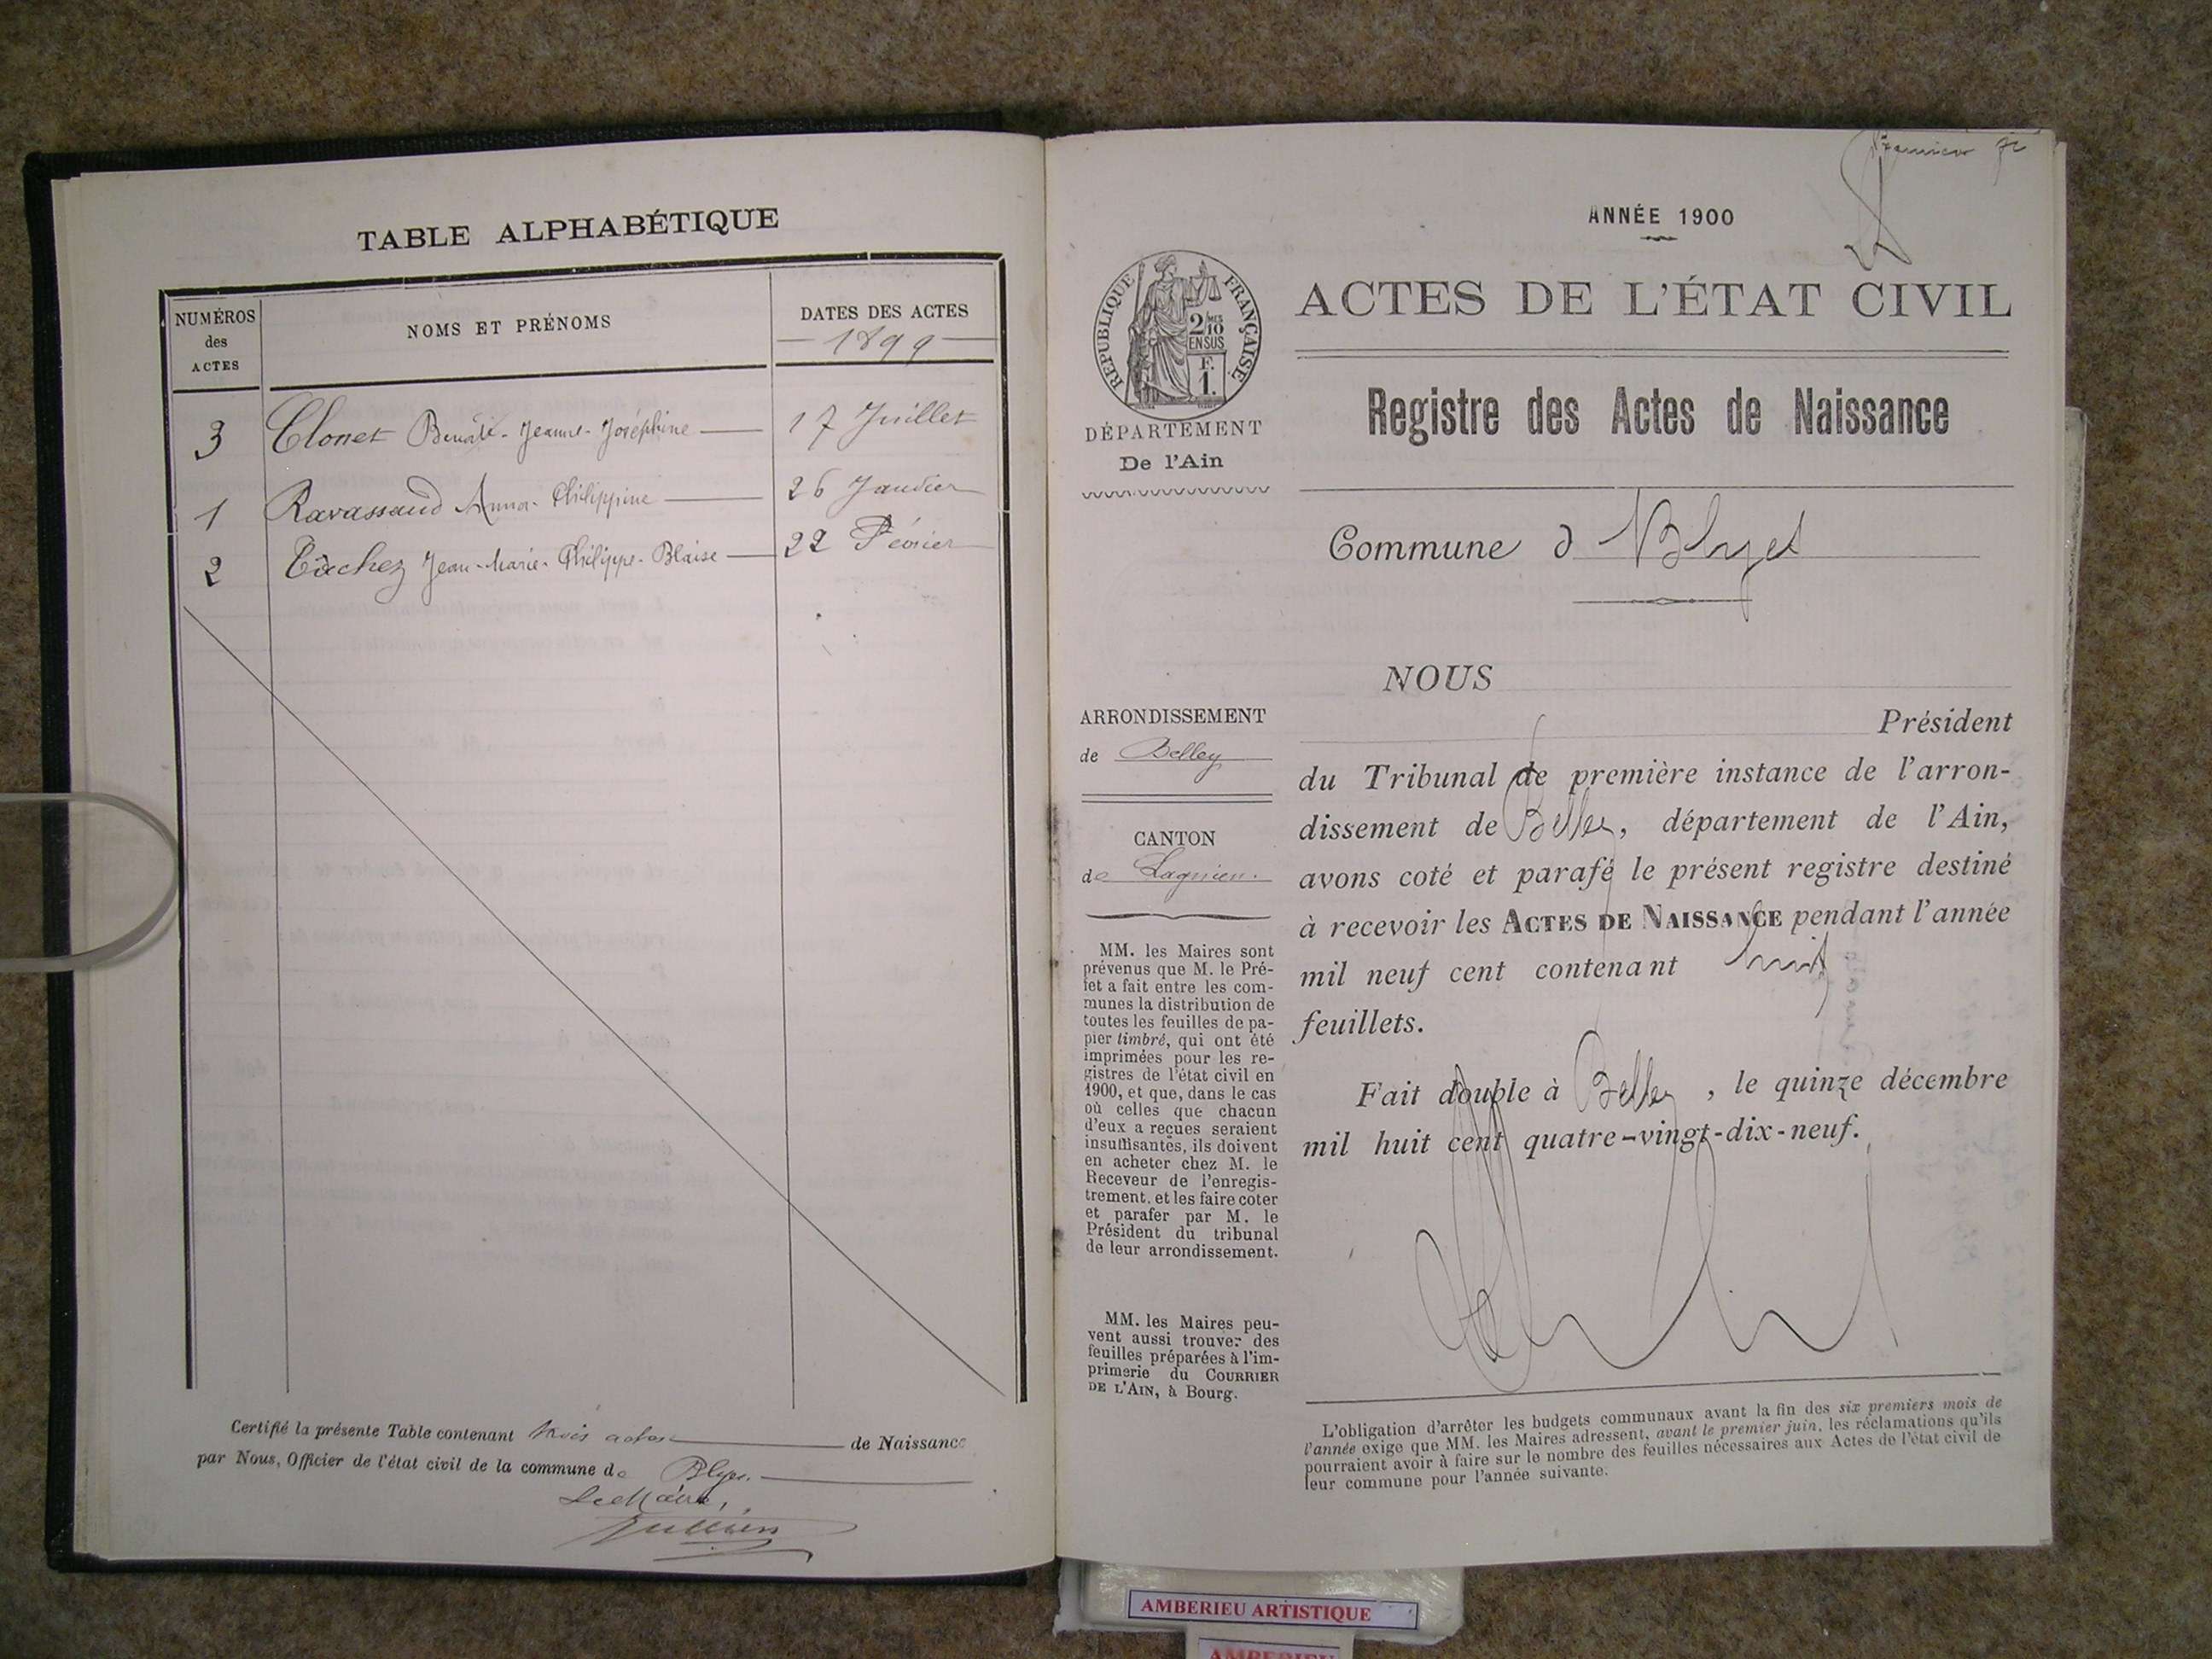 TABLE ALPHABÉTIQUE
NUMÉROS
des
ACTES
NOMS ET PRÉNOMS
DATES DES ACTES
1899
3 Clonet Benoîte-Jeanne-Joséphine 17 Juillet
1 Ravassaud Anna-Philippine 26 Janvier
2 Tâchez Jean-Marie-Philippe-Blaise 22 Février
Certifié la présente Table contenant trois actes de Naissance
par Nous, Officier de l'état civil de la commune de Blyes.
Le Maire,
Jullien
Premier ft
ANNÉE 1900
RÉPUBLIQUE FRANÇAISE
2/10 MES
EN SUS
F.
1.
DÉPARTEMENT
De l'Ain
ACTES DE L'ÉTAT CIVIL
Registre des Actes de Naissance
Commune d Blyes
ARRONDISSEMENT
de Belley
CANTON
de Lagnieu.
MM. les Maires sont
prévenus que M. le Pré-
fet a fait entre les com-
munes la distribution de
toutes les feuilles de pa-
pier timbré, qui ont été
imprimées pour les re-
gistres de l'état civil en
1900, et que, dans le cas
où celles que chacun
d'eux a reçues seraient
insuffisantes, ils doivent
en acheter chez M. le
Receveur de l'enregis-
trement. et les faire coter
et parafer par M. le
Président du tribunal
de leur arrondissement.
MM. les Maires peu-
vent aussi trouver des
feuilles préparées à l'im-
primerie du COURRIER
DE L'AIN, à Bourg.
NOUS
Président
du Tribunal de première instance de l'arron-
dissement de Belley, département de l'Ain,
avons coté et parafé le présent registre destiné
à recevoir les ACTES DE NAISSANCE pendant l'année
mil neuf cent contenant huit
feuillets.
Fait double à Belley, le quinze décembre
mil huit cent quatre-vingt-dix-neuf.
L'obligation d'arrêter les budgets communaux avant la fin des six premiers mois de
l'année exige que MM. les Maires adressent, avant le premier juin, les réclamations qu'ils
pourraient avoir à faire sur le nombre des feuilles nécessaires aux Actes de l'état civil de
leur commune pour l'année suivante.
AMBERIEU ARTISTIQUE
AMBERIEU